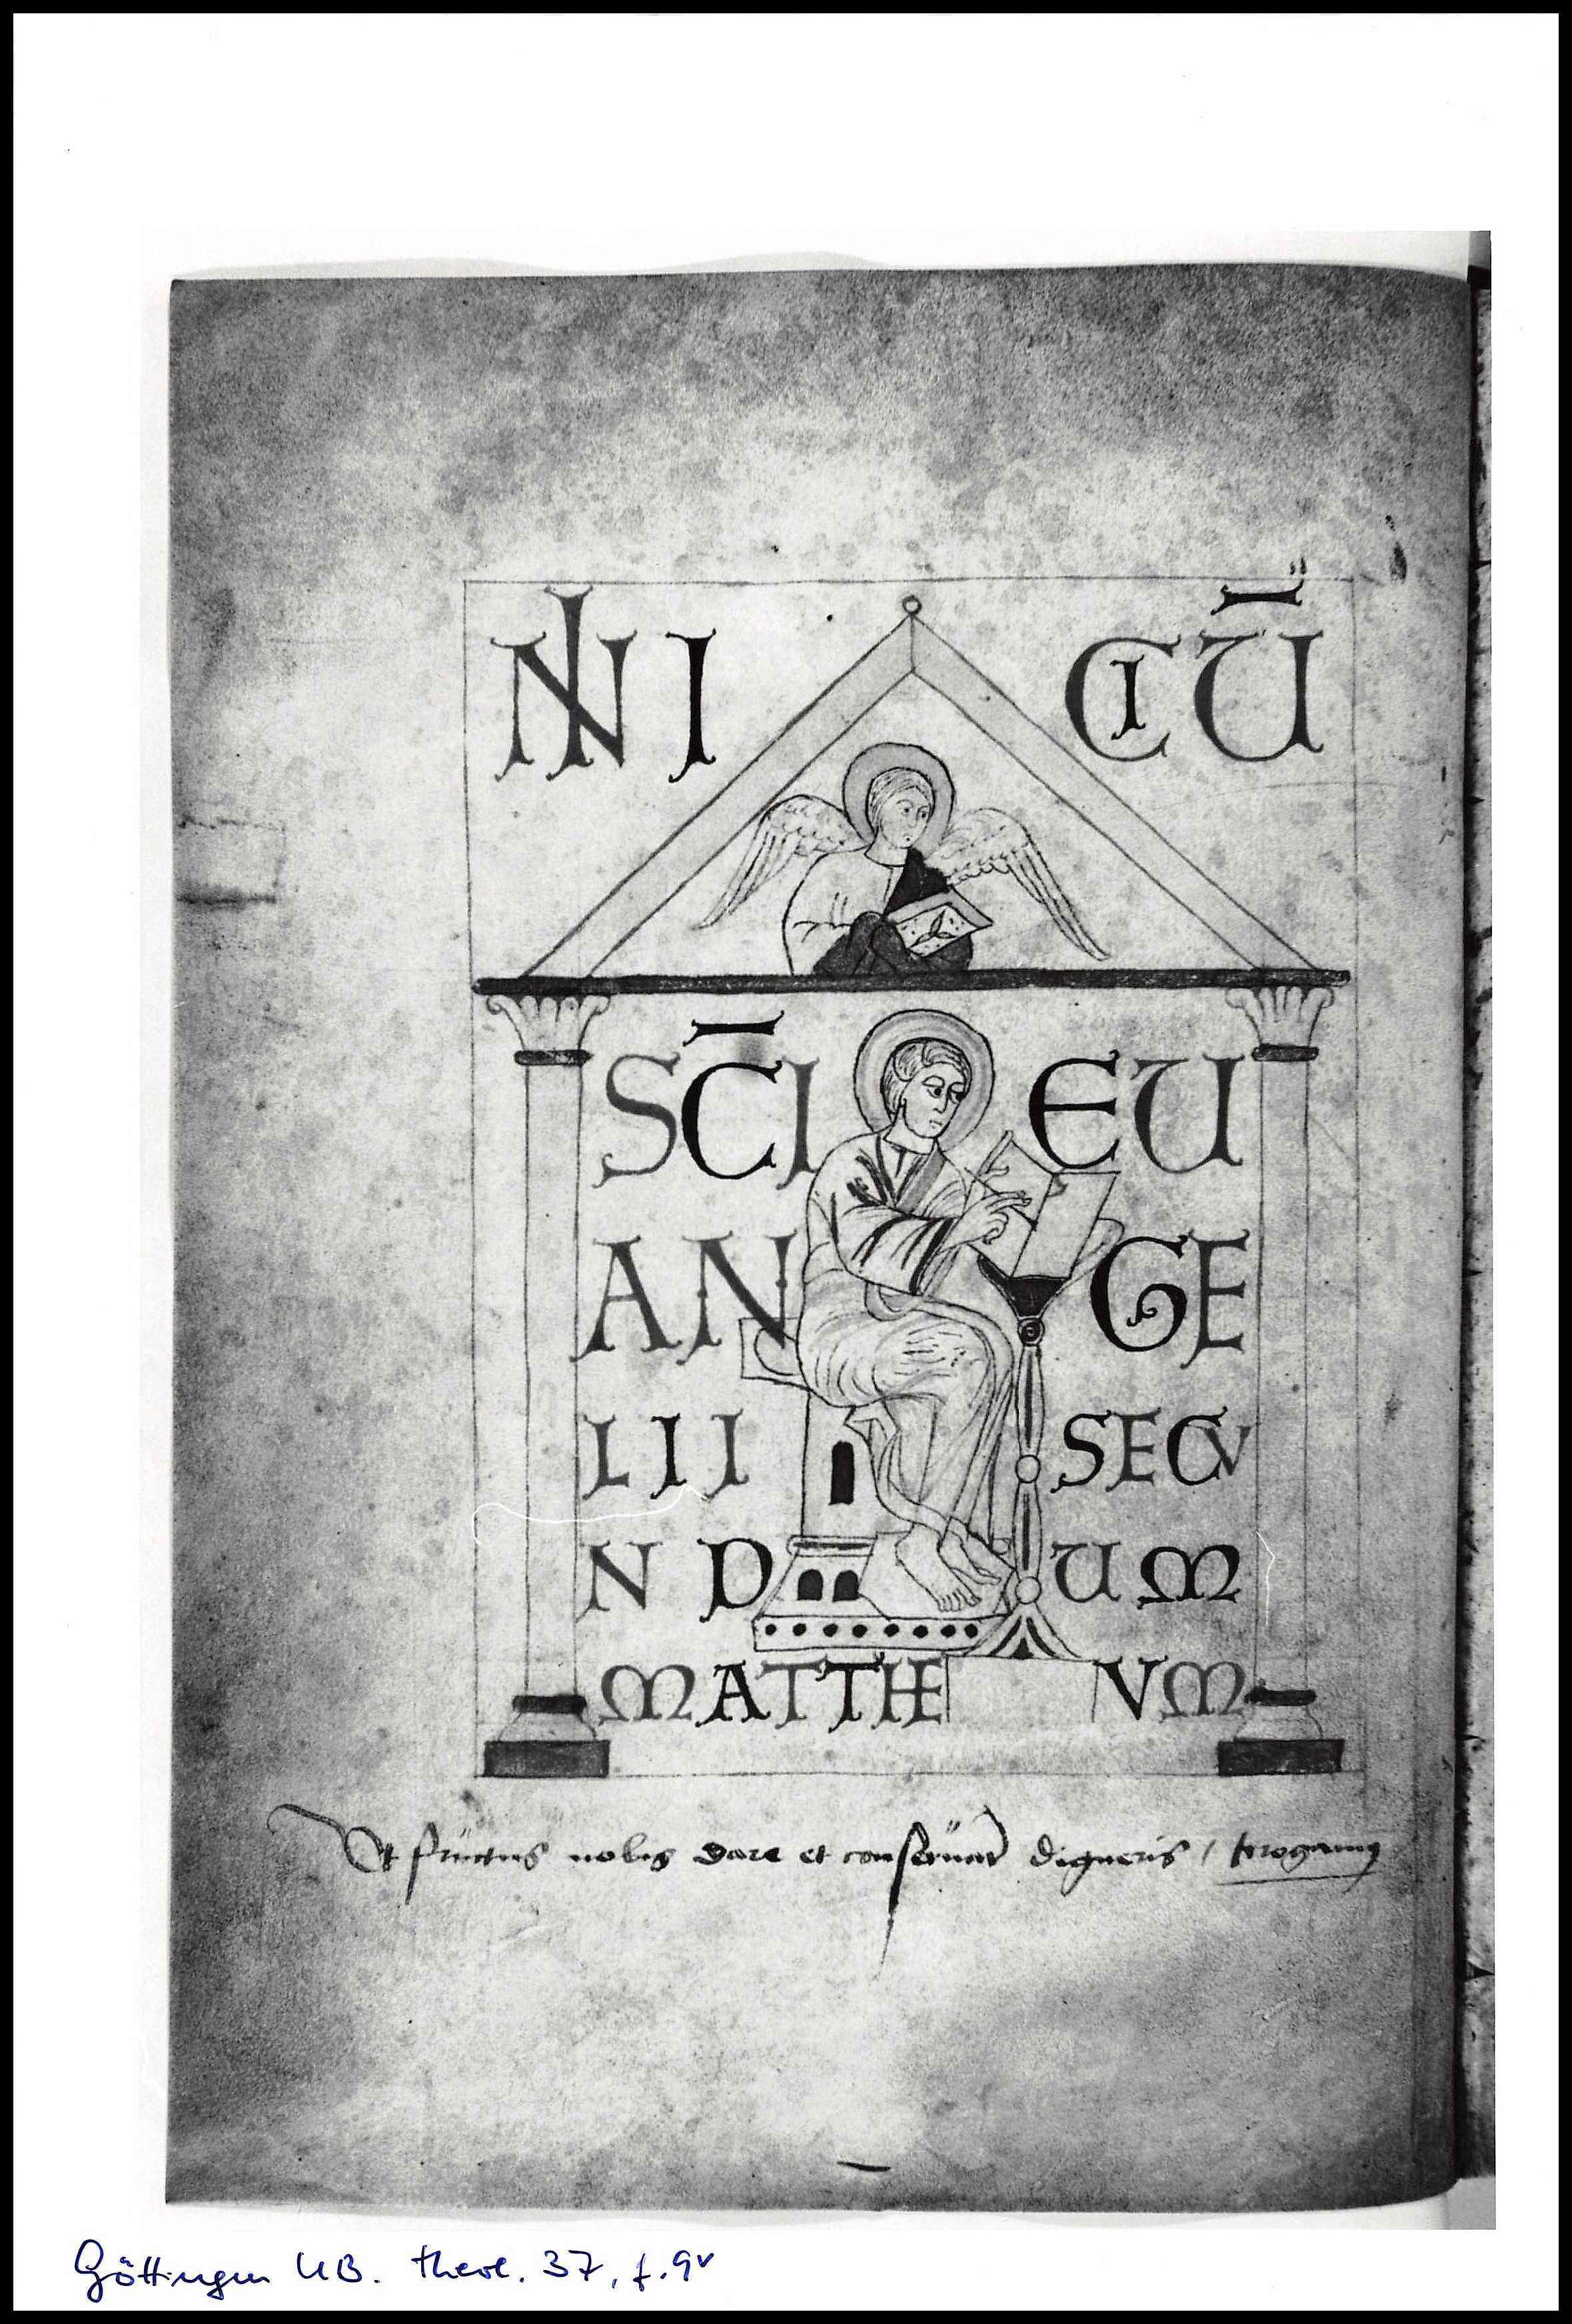 INI CIŪ
SC̄I EU
AN GE
LII SECV
N D UM
MATTHE VM
Ut fructus nobis dare et conservar digneris / te rogamus
Göttingen UB. theol. 37, f. 9v